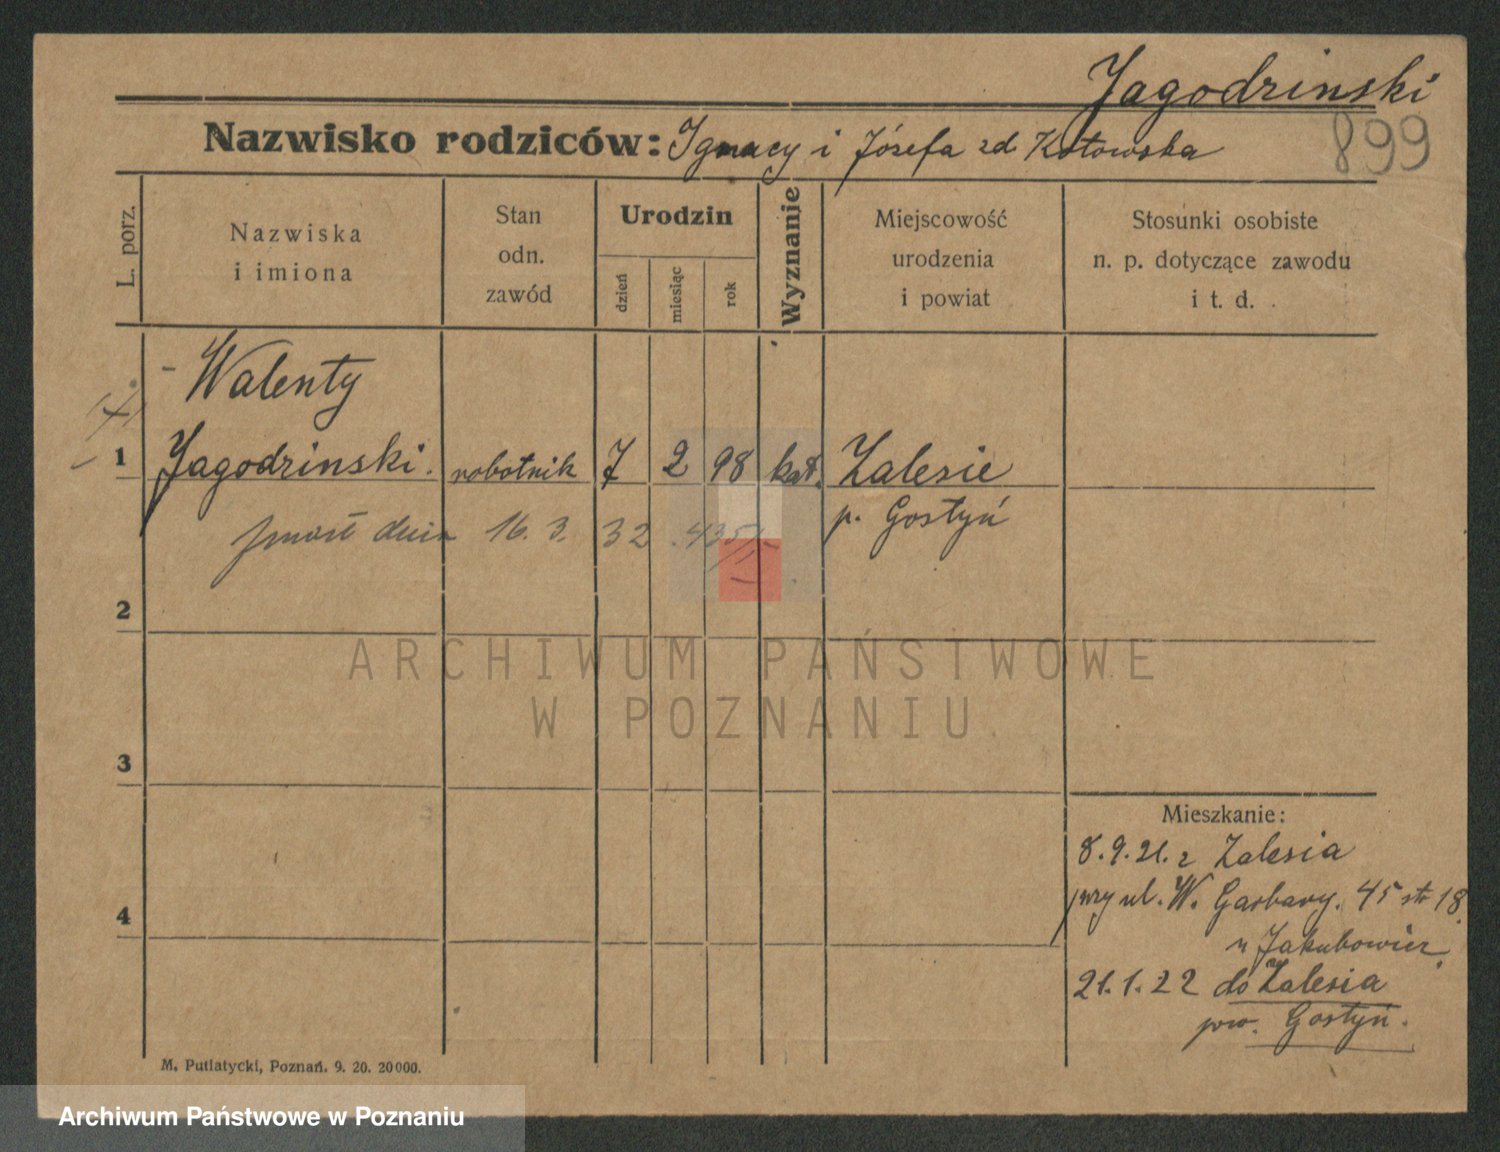 Jagodzinski
899
Nazwisko rodziców: Ignacy i Józefa zd Kotowska
L. porz.
Nazwiska
i imiona
Stan
odn.
zawód
Urodzin
dzień
miesiąc
rok
Wyznanie
Miejscowość
urodzenia
i powiat
Stosunki osobiste
n. p. dotyczące zawodu
i t. d.
Walenty
1 Jagodzinski. robotnik 7 2 98 kat. Zalesie
p. Gostyń
zmarł dnia 16. 3. 32
2
3
4
Mieszkanie:
8.9.21. z Zalesia
przy ul. W. Garbary. 45 str 18.
u Jakubowicz.
21.1.22 do Zalesia
pow. Gostyń.
M. Putiatycki, Poznań. 9. 20. 20000.
ARCHIWUM PAŃSTWOWE
W POZNANIU
Archiwum Państwowe w Poznaniu